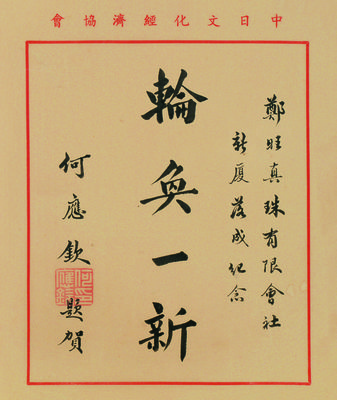 中日文化經濟協會
鄭旺真珠有限會社
新廈落成紀念
輪奐一新
何應欽題賀